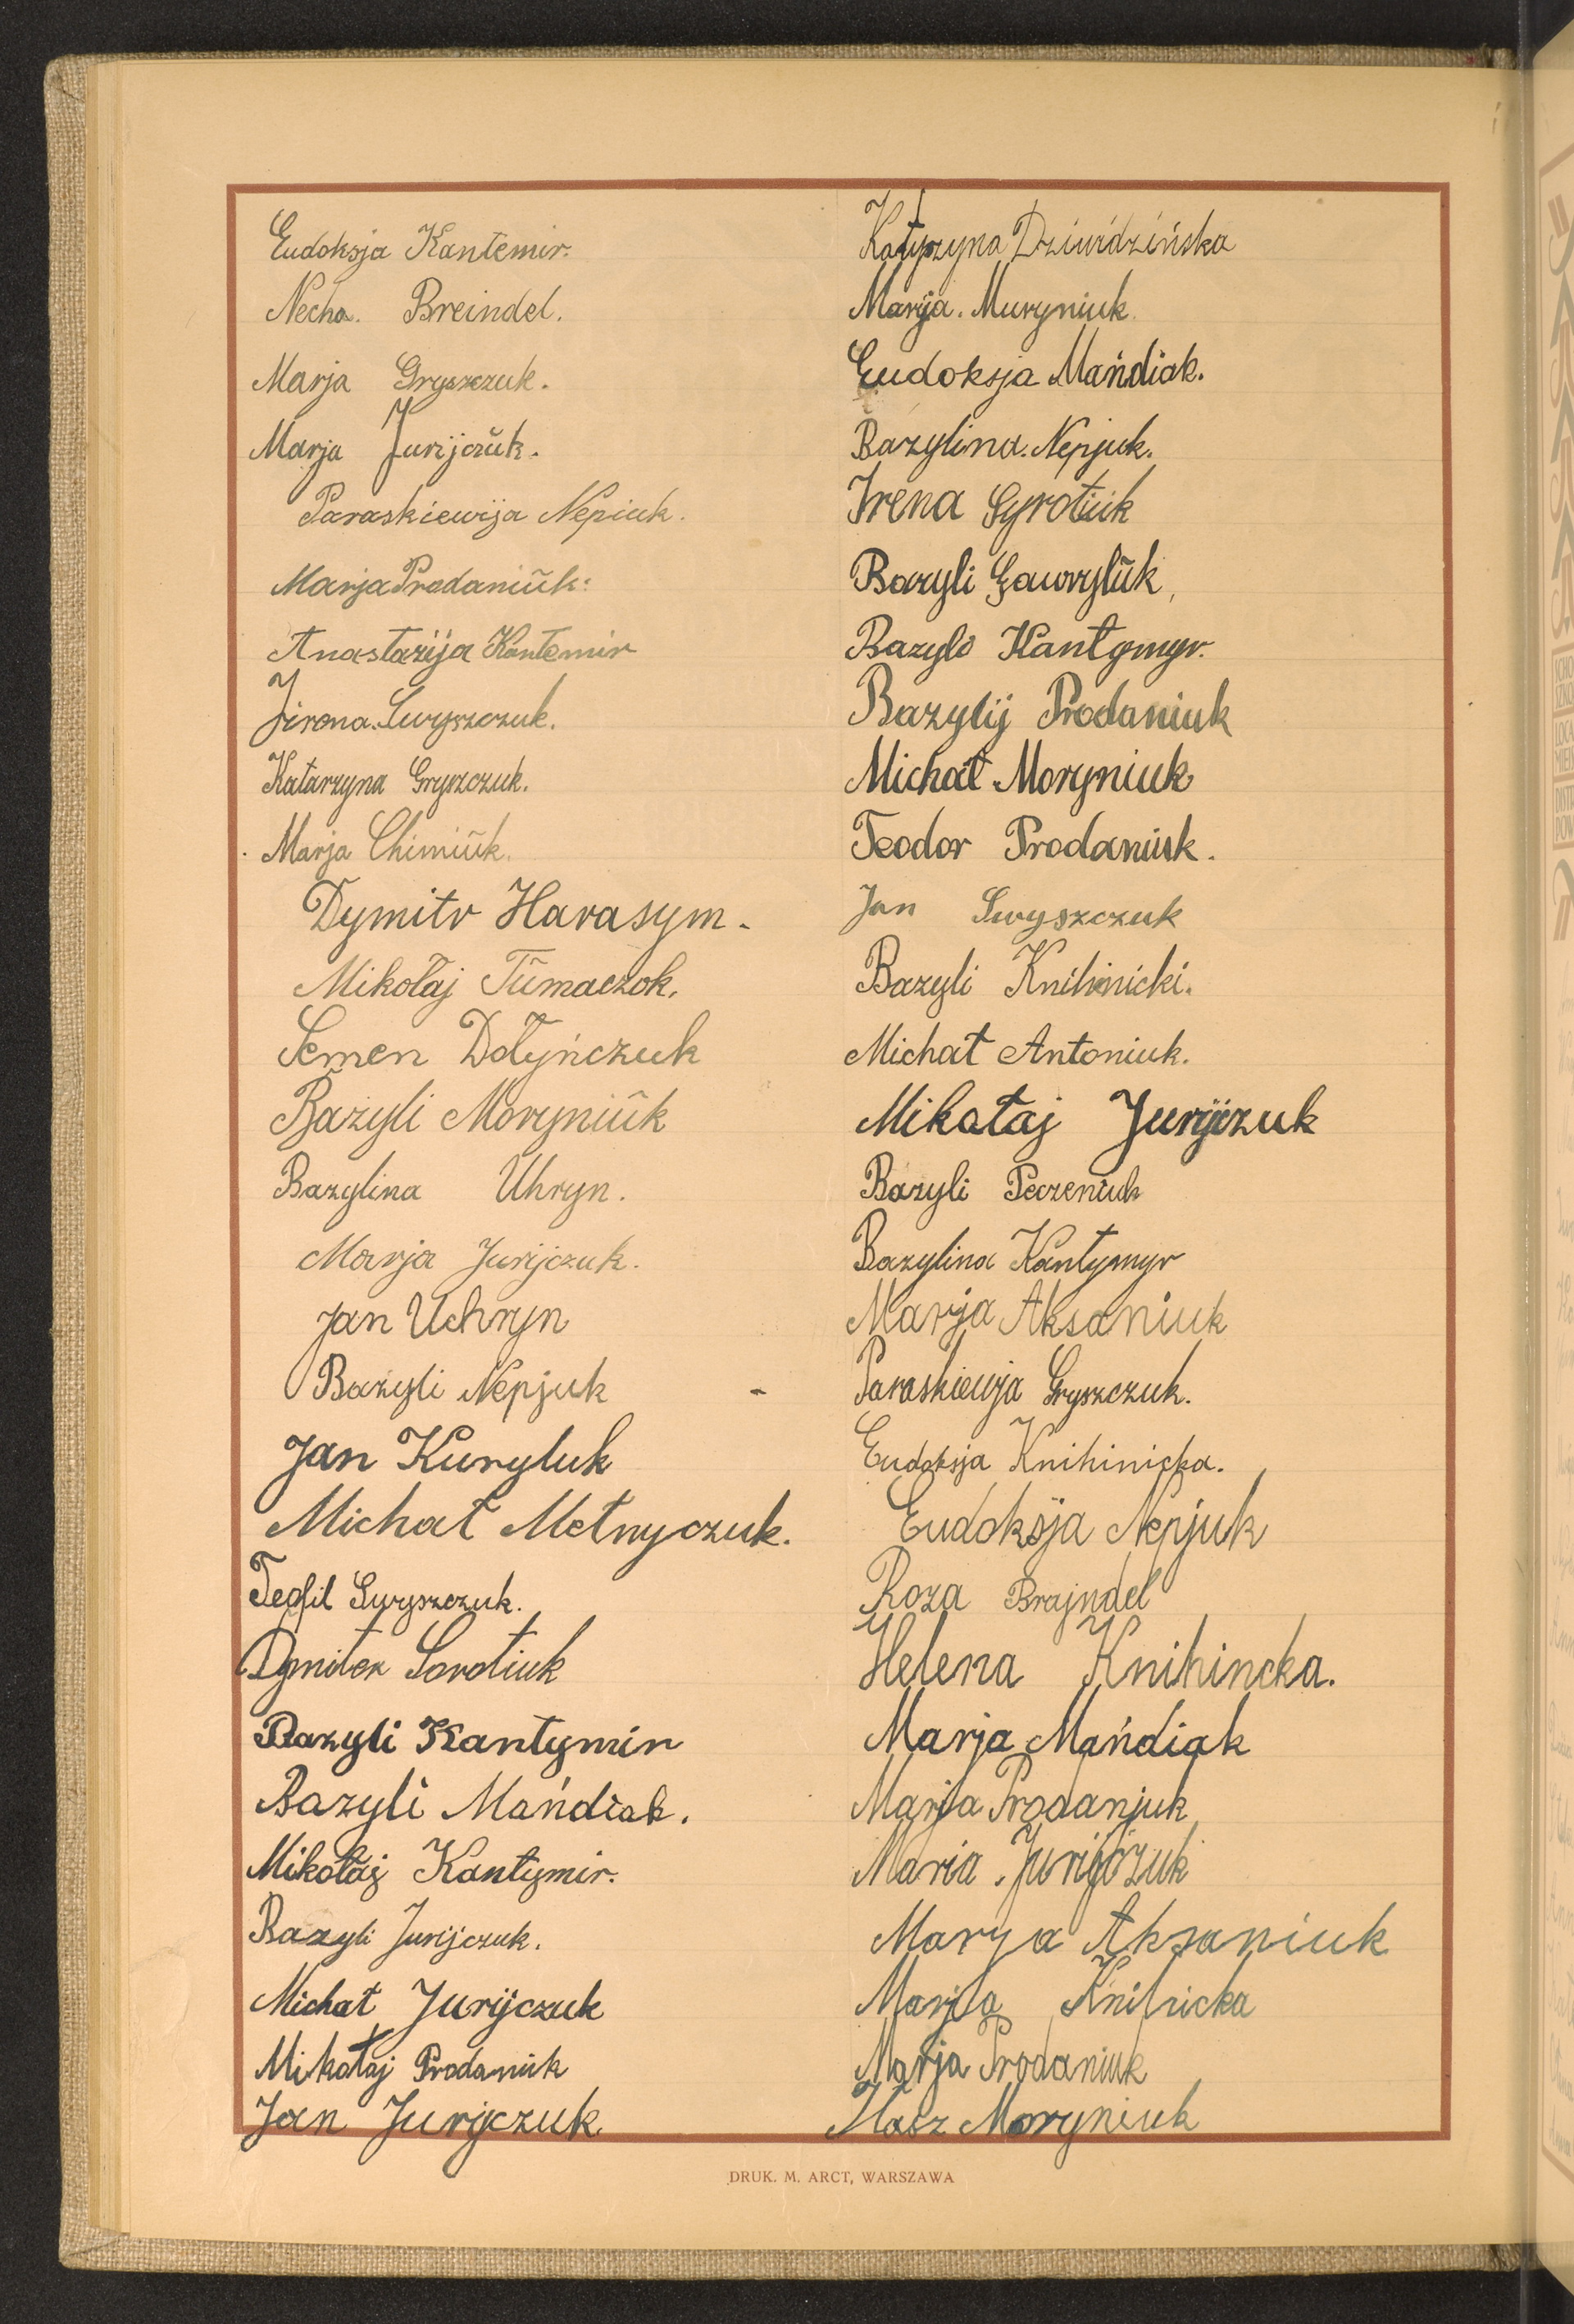 Eudoksja Kantemir.
Necha. Breindel.
Marja Gryszczuk.
Marja Jurijczŭk.
Paraskiewija Nepiuk.
Marja Prodaniŭk.
Anastazija Kantemir
Jirona Swyszczuk.
Katarzyna Gryszczuk.
Marja Chimiŭk.
Dymitr Harasym.
Mikołaj Tŭmaczok.
Semen Dołyńczuk
Bazyli Moryniŭk
Bazylina Uhryn.
Marja Jurijczuk.
Jan Uchryn
Bazyli Nepjuk
Jan Kuryluk
Michał Metnyczuk.
Teofil Swyszczuk.
Dymiter Sorotiuk
Bazyli Kantymir
Bazyli Mańdiak.
Mikołaj Kantymir.
Bazyli Jurijczuk.
Michał Jurijczuk
Mikołaj Prodaniuk
Jan Jurijczuk
Katyrzyna
Marija. Muryniuk
Eudoksja Mańdiak.
Bazylina. Nepjuk.
Irena Syrotiuk
Bazyli Gawrylŭk
Bazyli Kantymyr.
Bazylij Prodaniuk
Michał Moryniuk
Teodor Prodaniuk.
Jan Swyszczuk
Bazyli Knihinicki.
Michał Antoniuk.
Mikałaj Jurijczuk
Bazyli Peczeniuk
Bazylina Kantymyr
Marja Aksaniuk
Paraskiewja Gryszczuk.
Eudoksja Knihinicka.
Eudoksja Nepjuk
Roza Brajndel
Helena Knihincka.
Marja Mańdiak
Marja Prodanjuk
Maria. Jurijczuk
Marya Aksaniuk
Marja Knihicka
Marja Prodaniuk
Moryniuk
DRUK. M. ARCT, WARSZAWA